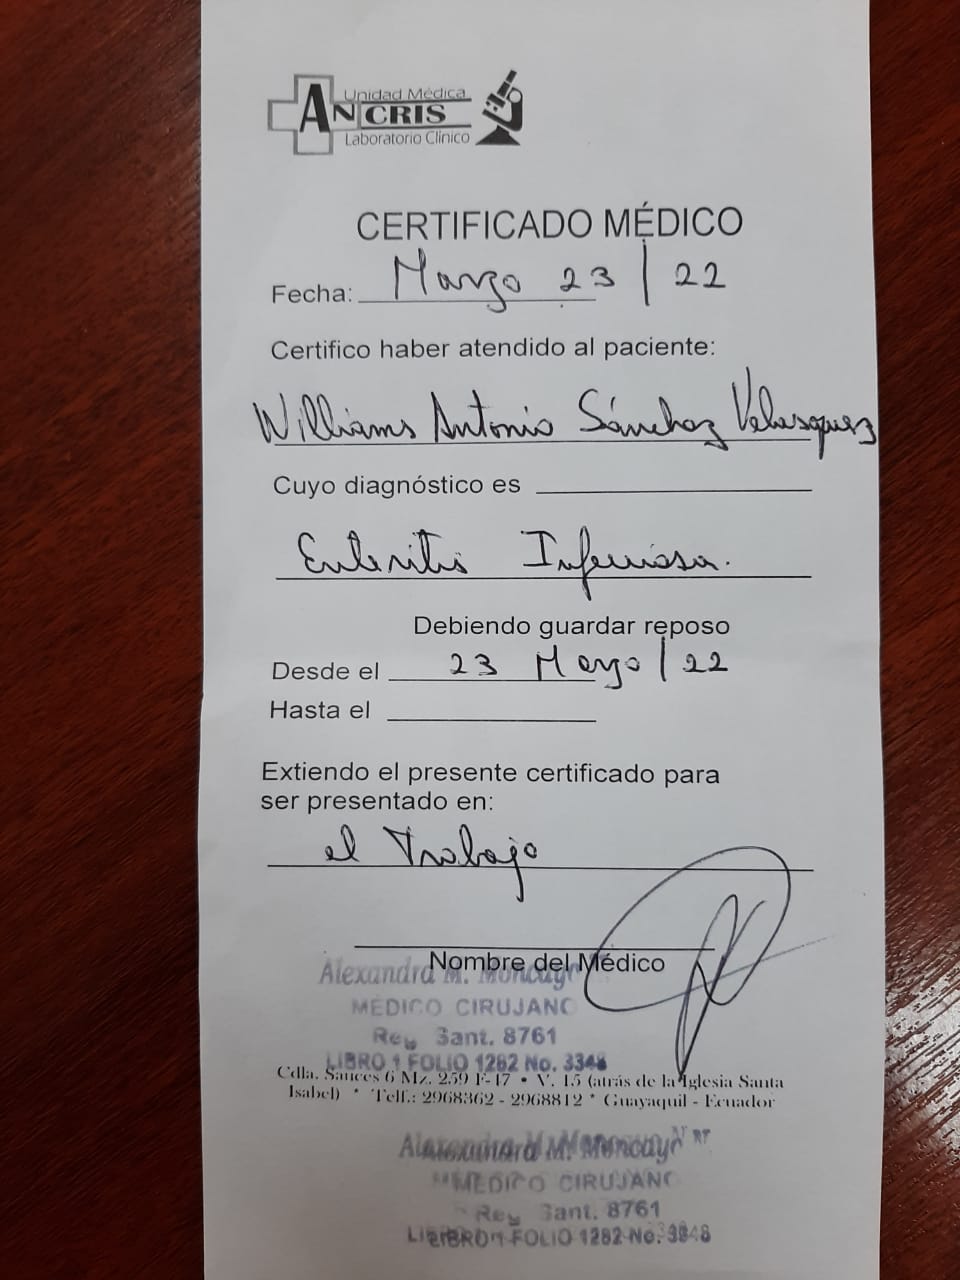 Unidad Médica
ANCRIS
Laboratorio Clínico
CERTIFICADO MÉDICO
Fecha: Marzo 23 / 22
Certifico haber atendido al paciente:
Williams Antonio Sánchez Velasquez
Cuyo diagnóstico es
Enteritis Infecciosa.
Debiendo guardar reposo
Desde el 23 Marzo / 22
Hasta el
Extiendo el presente certificado para
ser presentado en:
el Trabajo
Nombre del Médico
Alexandra M. Moncayo
MÉDICO CIRUJANO
Reg Sant. 8761
LIBRO 1 FOLIO 1282 No. 3348
Cdla. Sauces 6 Mz. 259 F-17 • V. 15 (atrás de la Iglesia Santa
Isabel) * Telf.: 2968362 - 2968812 * Guayaquil - Ecuador
Alexandra M. Moncayo
MEDICO CIRUJANO
Reg Sant. 8761
LIBRO 1 FOLIO 1282 No. 3348